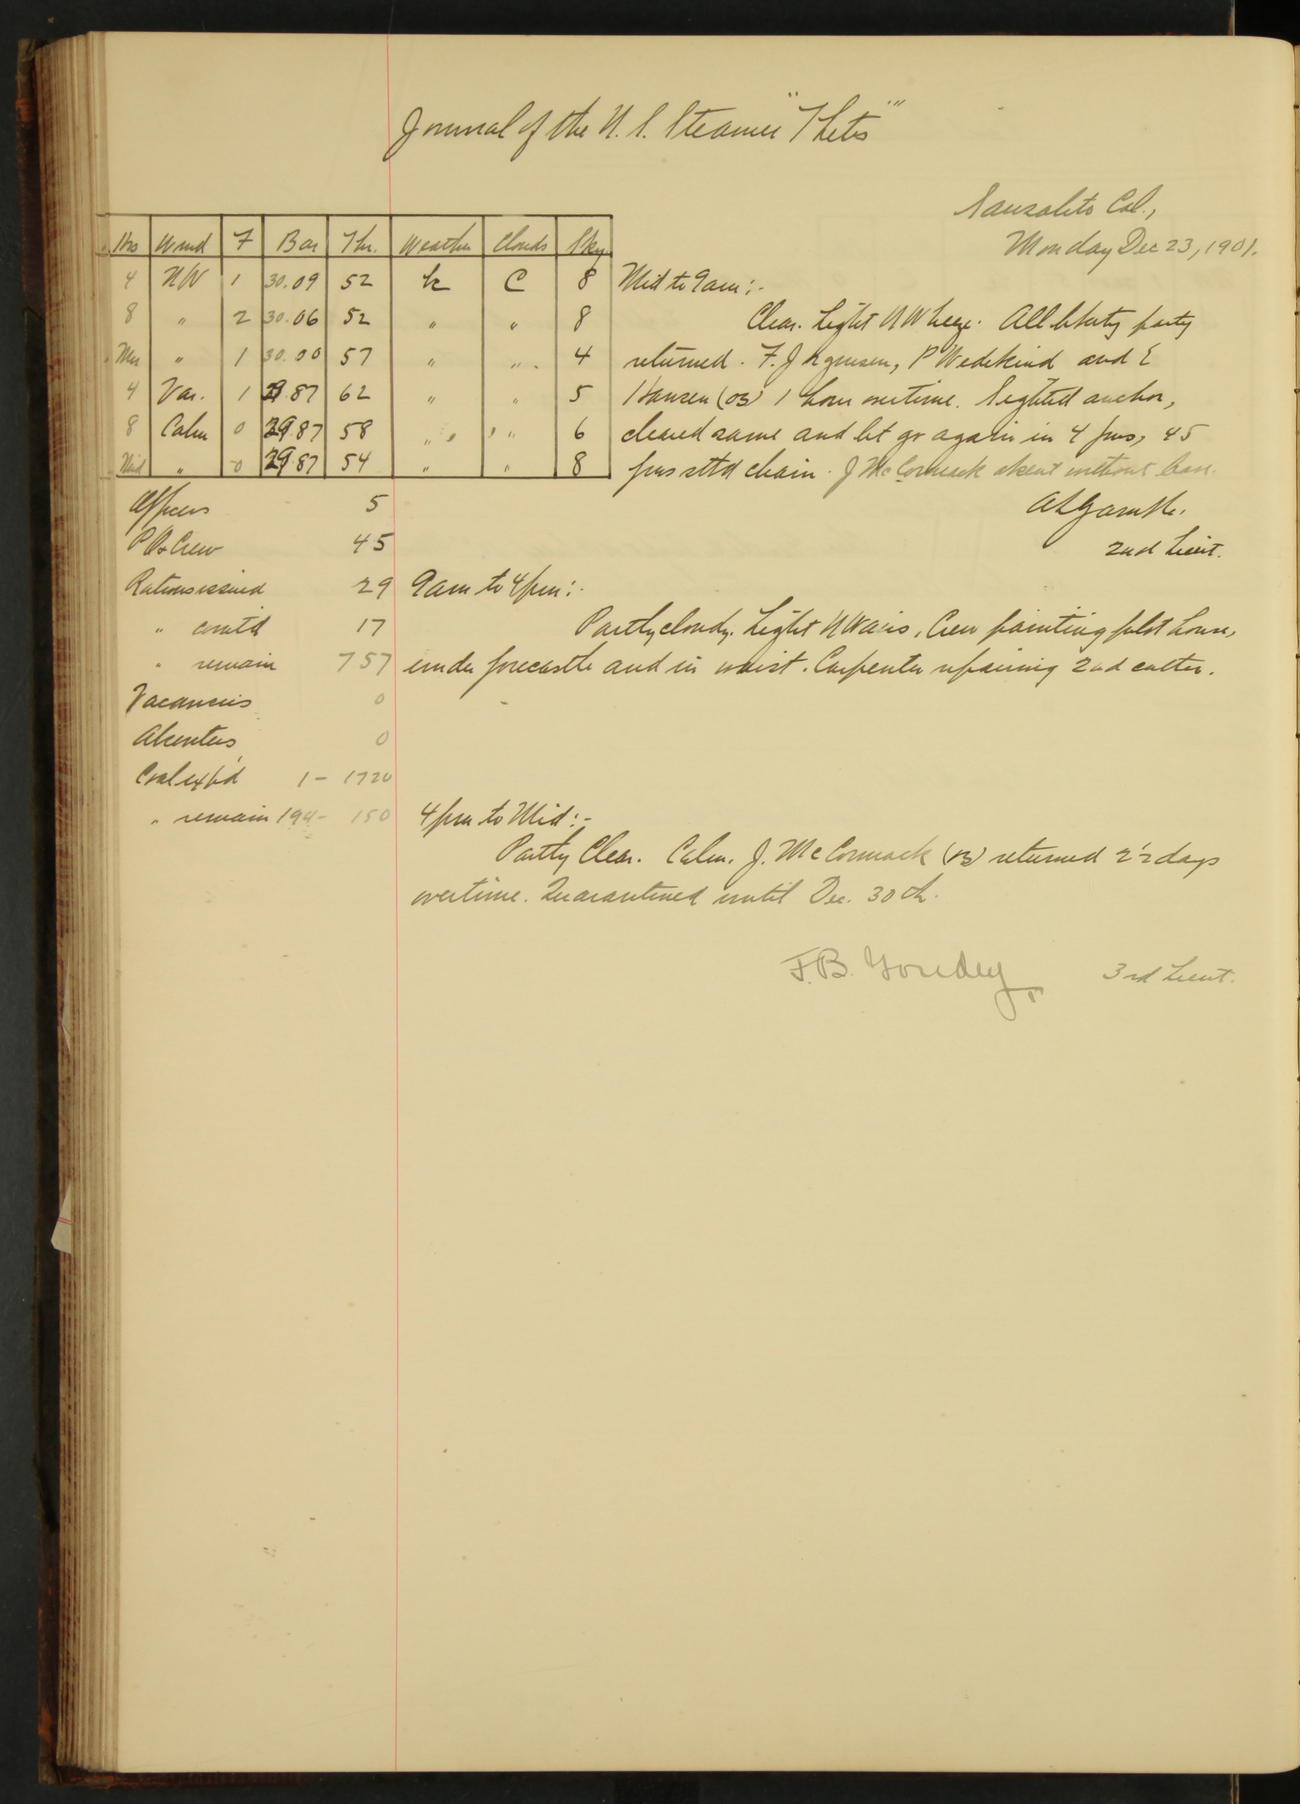 Journal of the U.S. Steamer "Thetis"
Sausalito Cal.,
Monday Dec 23, 1901.
Hrs Wind F Bar Thr. Weather Clouds Sky
4 NW 1 30.09 52 bc C 8
8 " 2 30.06 52 " " 8
Mer " 1 30.00 57 " " 4
4 Var. 1 29.87 62 " " 5
8 Calm 0 29.87 58 " " 6
Mid " 0 29.87 54 " " 8
Mid to 9am:-
Clear. Light NW breeze. All liberty party
returned. F. Jorgensen, P Wedekind and E
Hansen (os) 1 hour overtime. Sighted anchor,
cleared same and let go again in 4 fms, 45
fms stbd chain. J McCormack absent without leave.
2nd Lieut.
Officers 5
P O & Crew 45
Rations issued 29
" com'td 17
" remain 757
Vacancies 0
Absentees 0
Coal exp'd 1 - 1720
" remain 194 - 150
9am to 4pm:-
Partly cloudy. Light NW airs. Crew painting pilot house,
under forecastle and in waist. Carpenter repairing 2nd cutter.
4pm to Mid:-
Partly Clear. Calm. J. McCormack (os) returned 2½ days
overtime. Quarantined until Dec. 30th.
3rd Lieut.